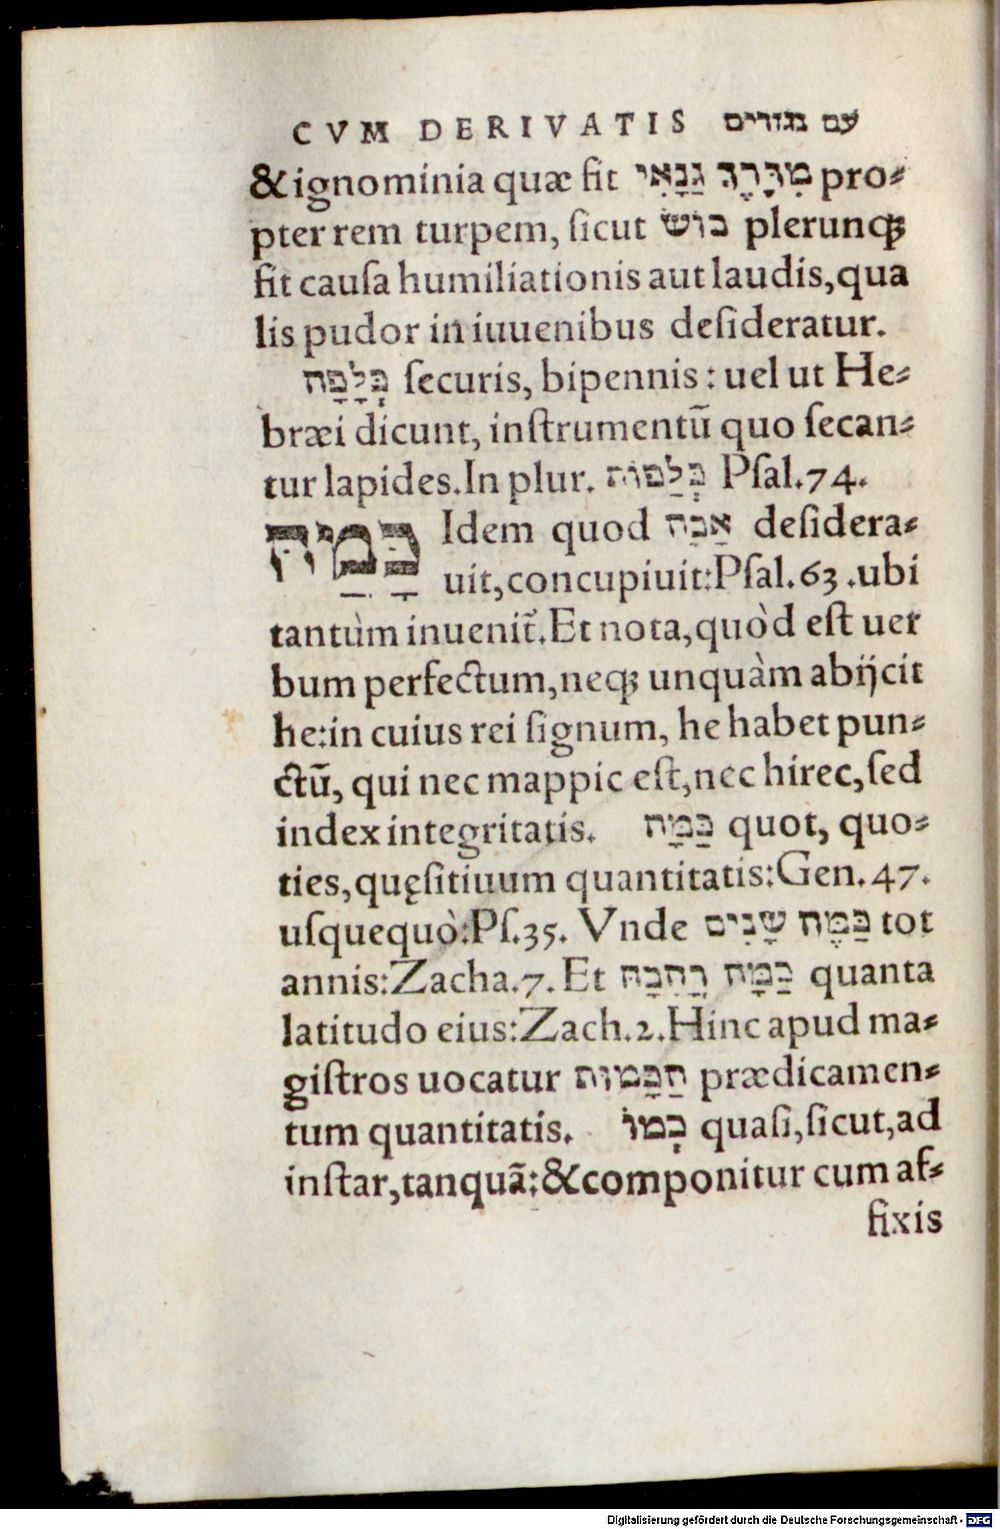 CVM DERIVATIS עם נגזרים
&ignominia quæ fit מִדֶּרֶךְ גַּנָאִי pro-
pter rem turpem, ſicut בוֹשׁ plerunq;
fit cauſa humiliationis aut laudis,qua
lis pudor in iuuenibus deſideratur.
כֵּלָפָה ſecuris, bipennis: uel ut He-
bræi dicunt, inſtrumentū quo ſecan-
tur lapides.In plur. כֵּלַפוֹת Pſal.74.
כָּמִהַּ Idem quod אַבָה deſidera-
uit,concupiuit:Pſal.63.ubi
tantùm inuenit̃.Et nota,quòd eſt uer
bum perfectum,neq; unquàm abijcit
he:in cuius rei ſignum, he habet pun-
ctū, qui nec mappic eſt,nec hirec,ſed
index integritatis. כַּמָּה quot, quo-
ties,quęſitiuum quantitatis:Gen.47.
uſquequò:Pſ.35. Vnde כַּמֶּה שָׁנִים tot
annis:Zacha.7.Et כַּמָּה רָחְבָּהּ quanta
latitudo eius:Zach.2.Hinc apud ma-
giſtros uocatur הַכַּמּוּת prædicamen-
tum quantitatis. כְּמוֹ quaſi,ſicut,ad
inſtar,tanquā:&componitur cum af-
fixis
Digitalisierung gefördert durch die Deutsche Forschungsgemeinschaft - DFG